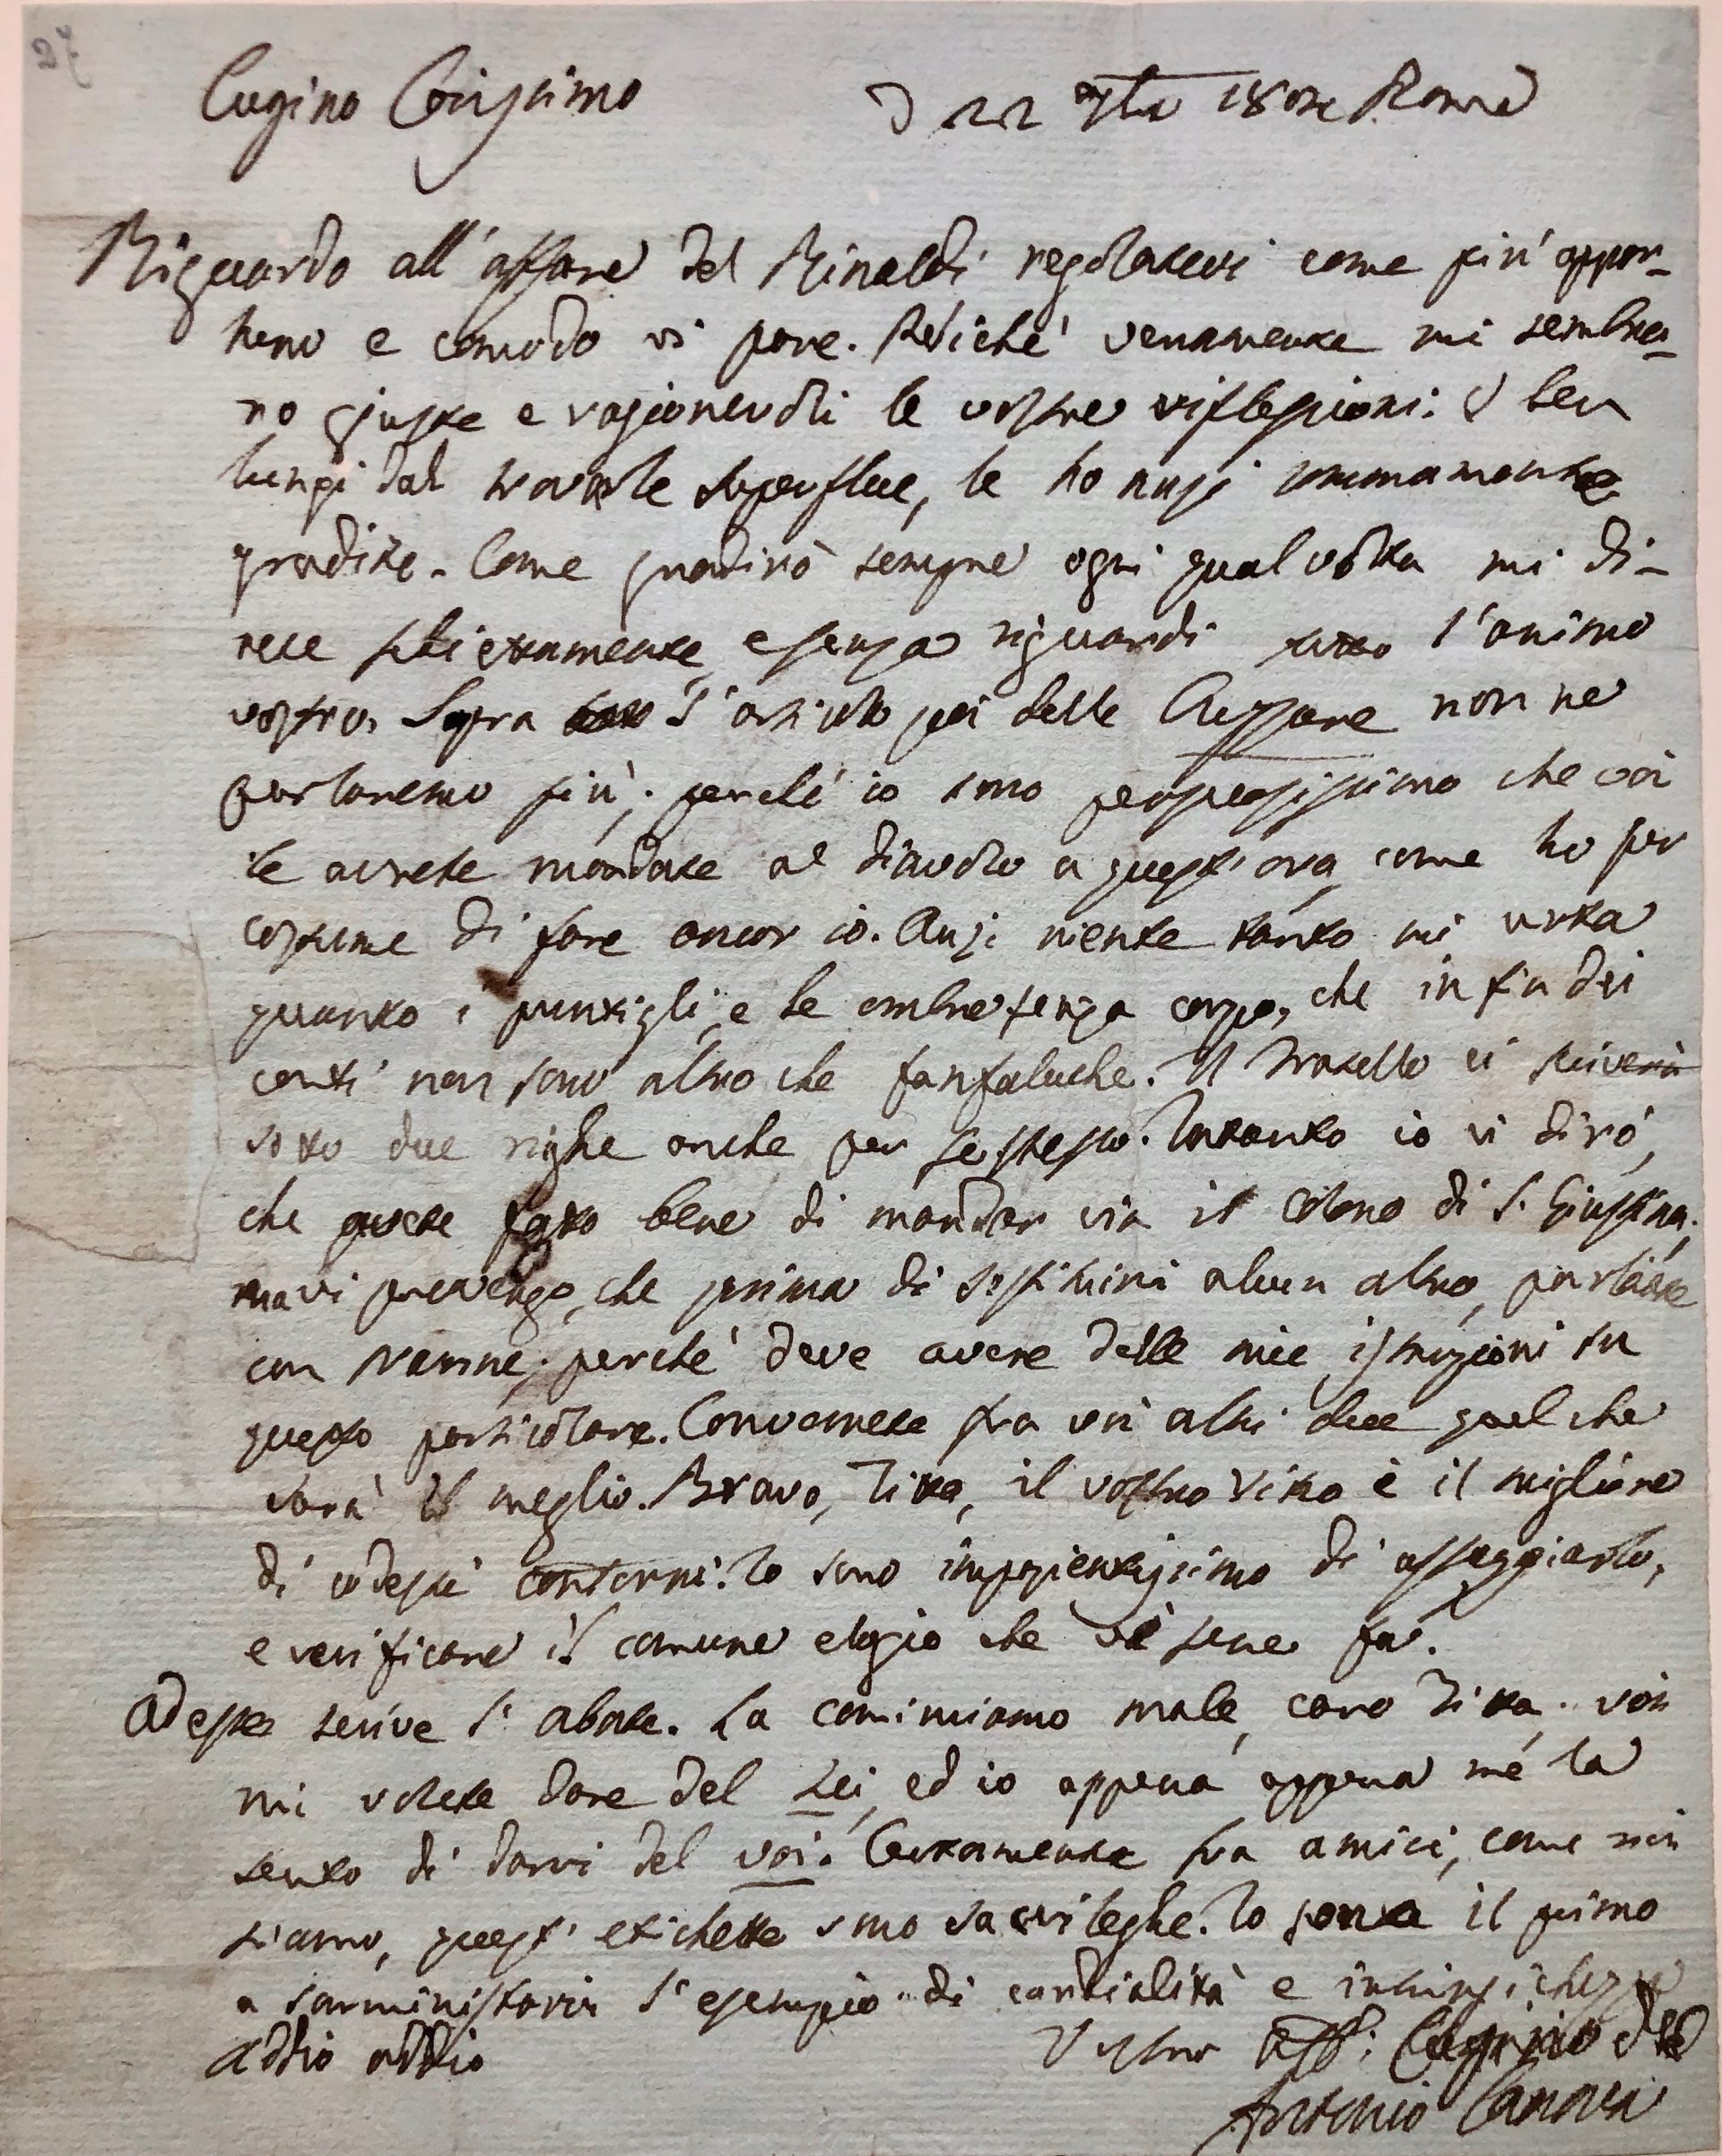 27
Cugino Carissimo
22 Roma
Riguardo all'affare del Rinaldi regolatevi come più oppor-
tuno e comodo vi pare. veramente mi sembra-
no giuste e ragionevoli le vostre riflessioni: e ben
lungi dal trovarle superflue, le ho anzi sommamente
gradite. Come gradirò sempre ogni qual volta mi di-
rete schiettamente, e senza riguardi tutto l'animo
vostro. Sopra l'articolo poi delle non ne
parlaremo più; perché io sono persuasissimo che voi
le avrete mandate al diavolo a quest'ora, come ho per
costume di fare ancor io. Anzi niente tanto mi urta
quanto i puntigli, e le ombre senza corpo, che in fin dei
conti non sono altro che fanfaluche. Il Fratello vi scriverà
sotto due righe anche per se stesso. Intanto io vi dirò,
che avete fatto bene di mandar via il Colono di S. Giustina;
ma vi prevengo, che prima di sostituirvi alcun altro, parliate
con perché deve avere delle mie istruzioni su
questo particolare. Convenite fra voi altri due quel che
sarà il meglio. Bravo, Tita, il vostro Vino è il migliore
di codesti contorni. Io sono impazientissimo di assaggiarlo,
e verificare il comune elogio che vi se ne fa.
Adesso scrive l'abate. La cominciamo male, caro Tita. voi
mi volete dare del Lei, ed io appena appena me la
sento di darvi del voi. Certamente fra amici, come noi
siamo, quest' etichette sono sacrileghe. Io sono il primo
a somministrarvi l'esempio di cordialità e intrinsichezza
addio addio Vostro Aff: Cugino
Antonio Canova